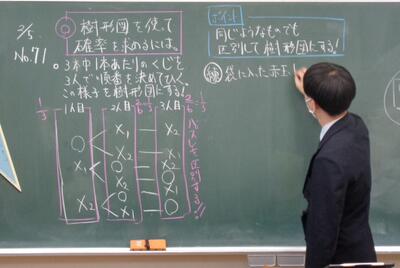 2/5
No.71
◎ 樹形図を使って
確率を求めるには。
○ 3本中1本あたりのくじを
3人で順番を決めてひく。
この様子を樹形図にする!
1/3 1人目 2人目 2/6 3人目 2/6=1/3
X₁ — X₂
○ <
X₂ — X₁
○ — X₂
X₁ <
X₂ — ○
○ — X₁
X₂ <
X₁ — ○
ハズレも区別する!!
ポイント
同じようなものでも
区別して樹形図にする!
練 袋に入った赤玉